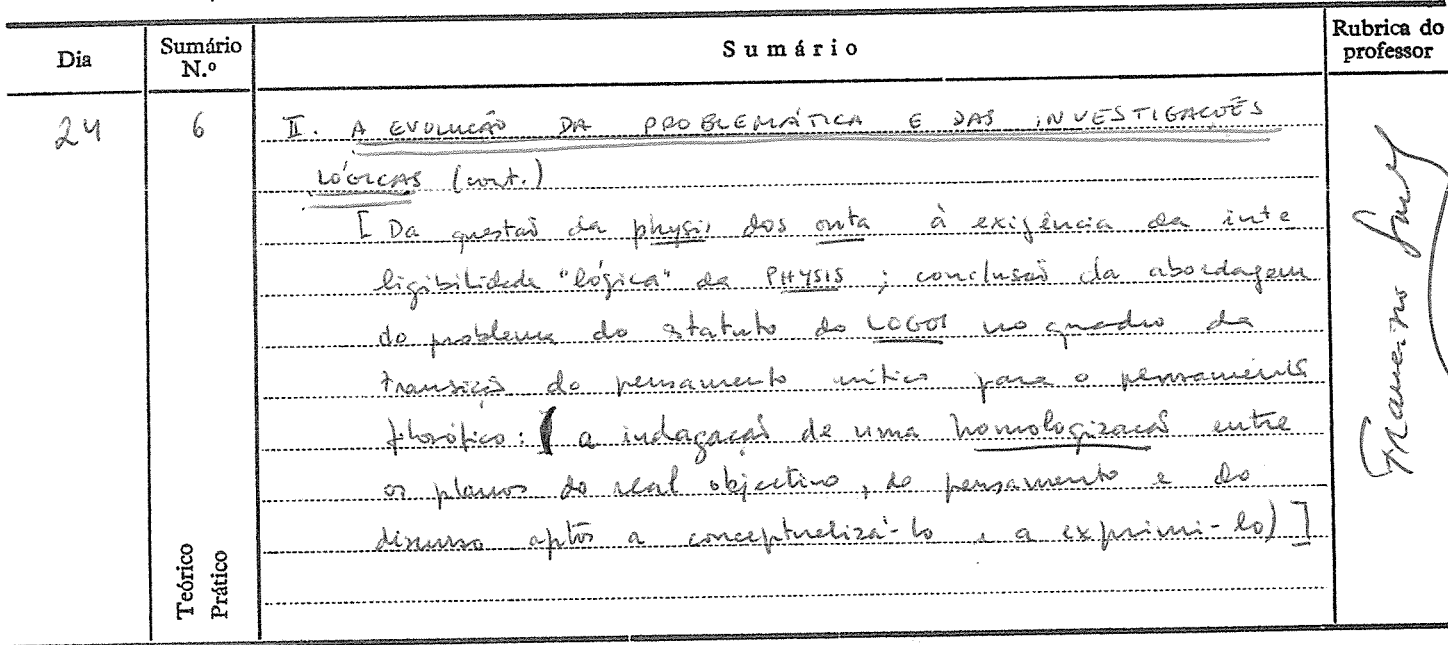 Dia
Sumário N.º
Sumário
Rubrica do professor
24
6
II. A EVOLUÇÃO DA PROBLEMÁTICA E DAS INVESTIGAÇÕES
LÓGICAS (cont.)
[Da questão da physis dos onta à exigência da inte
ligibilidade "lógica" da PHYSIS; conclusão da abordagem
do problema do statuto do LOGOS no quadro da
transição do pensamento mítico para o pensamento
filosófico: (a indagação de uma homologização entre
os planos do real objectivo, do pensamento e do
discurso aptos a conceptualizá-lo e a exprimi-lo)]
Teórico
Prático